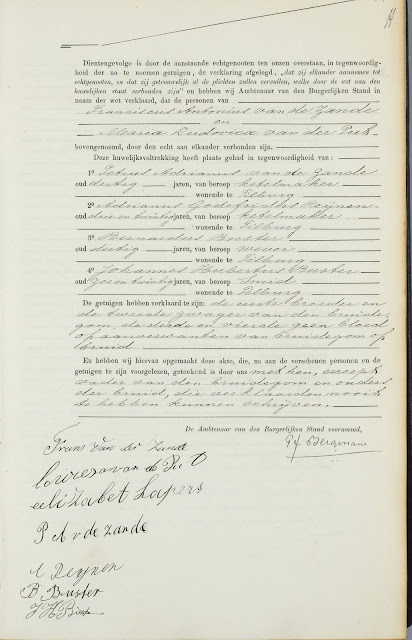 Dientengevolge is door de aanstaande echtgenooten ten onzen overstaan, in tegenwoordig-
heid der na te noemen getuigen, de verklaring afgelegd, „dat zij elkander aannemen tot
echtgenooten, en dat zij getrouwelijk al de plichten zullen vervullen, welke door de wet aan den
huwelijken staat verbonden zijn" en hebben wij Ambtenaar van den Burgerlijken Stand in
naam der wet verklaard, dat de personen van
Franciscus Antonius van de Zande
en
Maria Ludovica van der Put
bovengenoemd, door den echt aan elkander verbonden zijn.
Deze huwelijksvoltrekking heeft plaats gehad in tegenwoordigheid van:
1º Petrus Adrianus van de Zande
oud dertig jaren, van beroep ketelmaker
wonende te Tilburg
2º Adrianus Godefridus Reijnen
oud drie en twintig jaren, van beroep ketelmaker
wonende te Tilburg
3º Bernardus Buster
oud dertig jaren, van beroep wever
wonende te Tilburg
4º Johannes Hubertus Buster
oud zes en twintig jaren, van beroep smid
wonende te Tilburg
De getuigen hebben verklaard te zijn: de eerste broeder en
de tweede zwager van den bruide-
gom, de derde en vierde geen bloed
of aanverwanten van bruidegom of
bruid
En hebben wij hiervan opgemaakt deze akte, die, na aan de verschenen personen en de
getuigen te zijn voorgelezen, geteekend is door ons met hen, except
vader van den bruidegom en ouders
der bruid, die verklaarden nooit
te hebben kunnen schrijven.
De Ambtenaar van den Burgerlijken Stand voornoemd,
Bergmans
Frans van der Zande
van de Put
eelizabet Lapers
P A v de zande
Reijnen
B Buster
J H Buster